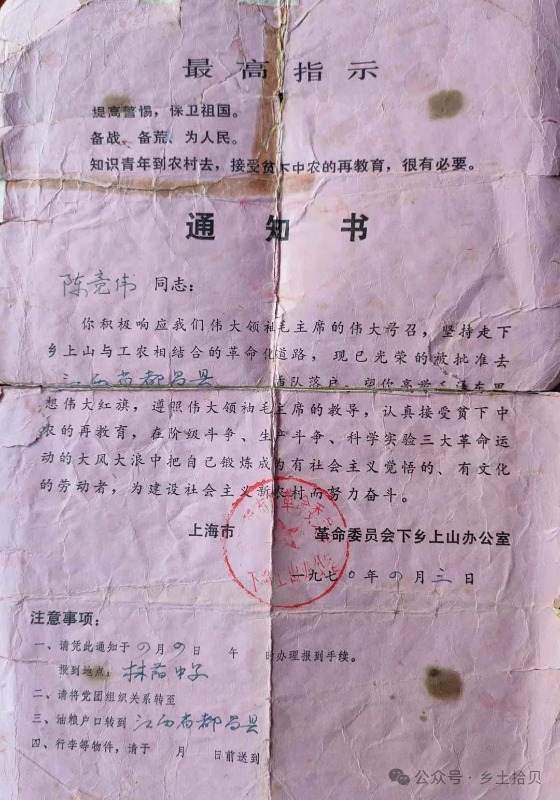 最高指示
提高警惕，保卫祖国。
备战、备荒、为人民。
知识青年到农村去，接受贫下中农的再教育，很有必要。
通知书
陈竞伟 同志：
你积极响应我们伟大领袖毛主席的伟大号召，坚持走下
乡上山与工农相结合的革命化道路，现已光荣的被批准去
江西省都昌县 插队落户。望你高举毛泽东思
想伟大红旗，遵照伟大领袖毛主席的教导，认真接受贫下中
农的再教育，在阶级斗争、生产斗争、科学实验三大革命运
动的大风大浪中把自己锻炼成为有社会主义觉悟的、有文化
的劳动者，为建设社会主义新农村而努力奋斗。
上海市 革命委员会下乡上山办公室
一九七〇年四月三日
注意事项：
一、请凭此通知于四月四日 午 时办理报到手续。
报到地点：林荫中学
二、请将党团组织关系转至
三、油粮户口转到 江西省都昌县
四、行李等物件，请于 月 日前送到
公众号·乡土拾贝